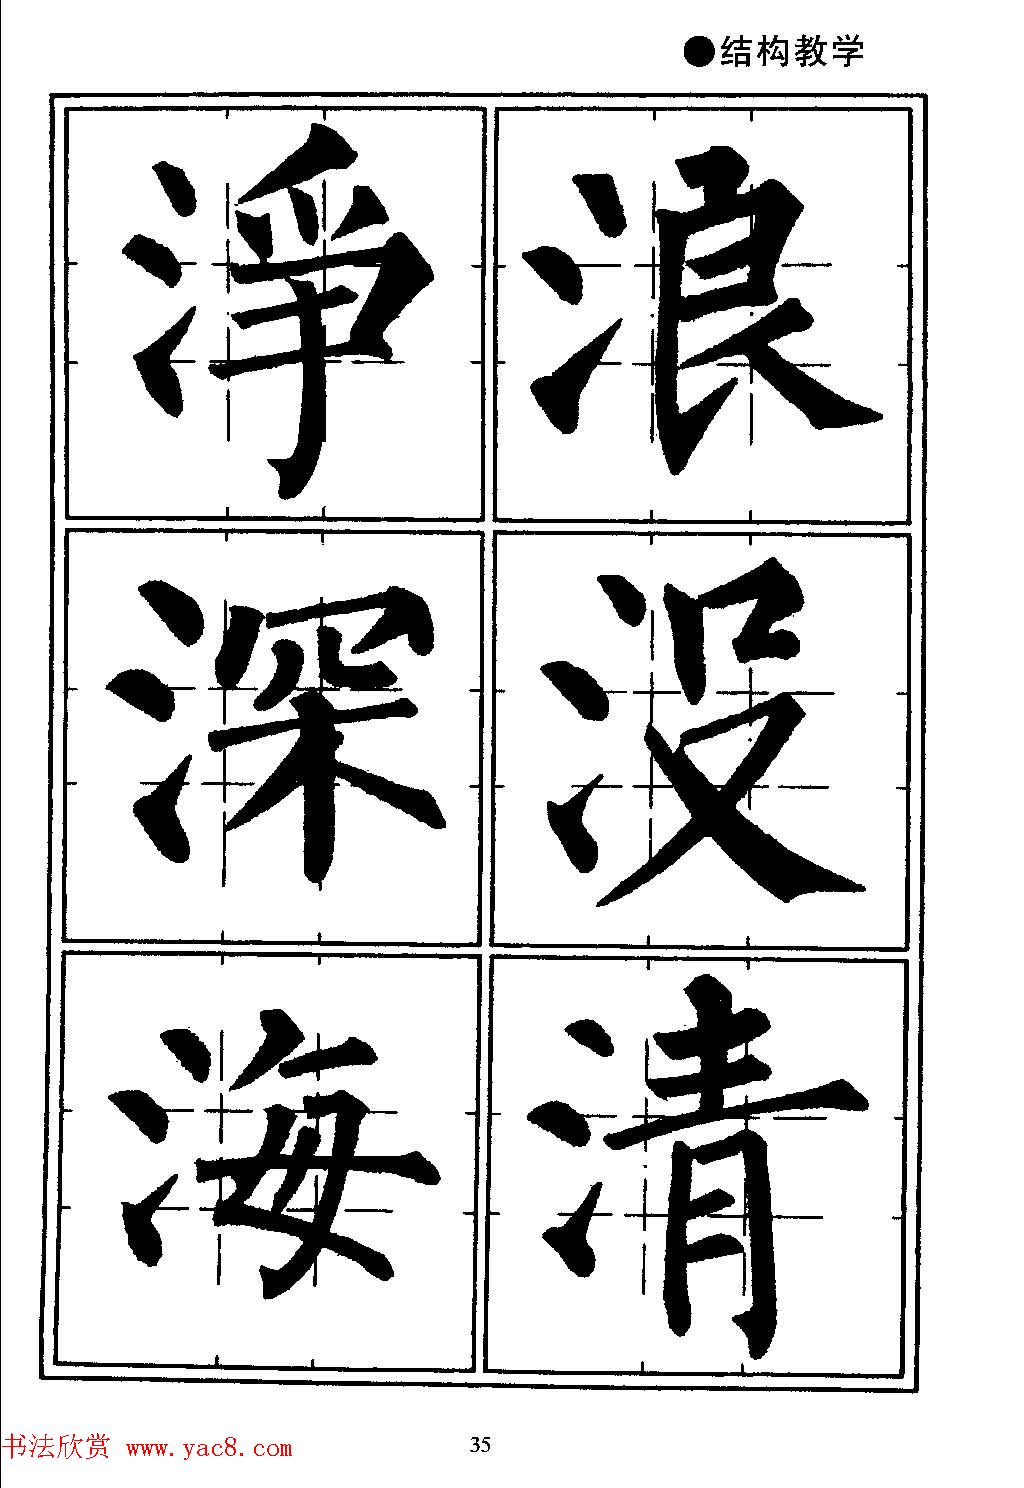 ●结构教学
淨 浪
深 没
海 清
书法欣赏 www.yac8.com
35